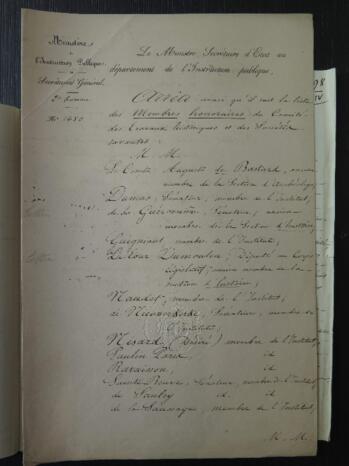 Ministère
de
l'Instruction Publique.
Secrétariat Général.
2e Bureau
No 1480
Le Ministre Secrétaire d'Etat au
département de l'Instruction publique,
Arrête ainsi qu'il suit la liste
des Membres honoraires du Comité
des travaux historiques et des Sociétés
savantes :
M. M.
Le Comte Auguste de Bastard, ancien
membre de la Section d'Archéologie,
Dumas, Sénateur, membre de l'Institut,
de la Sénateur, ancien
membre de la Section d'histoire,
Guigniaut, membre de l'Institut,
Dumoulin, Député au Corps
législatif, ancien membre de la
Section d'histoire,
Naudet, membre de l'Institut,
de Nieuwerkerke, Sénateur, membre de
l'Institut,
Nisard (Désiré) membre de l'Institut,
Paulin Paris id
Ravaisson, id
Sainte-Beuve, Sénateur, membre de l'Institut,
de Saulcy id. id
de la Saussaye, membre de l'Institut,
M. M.
98